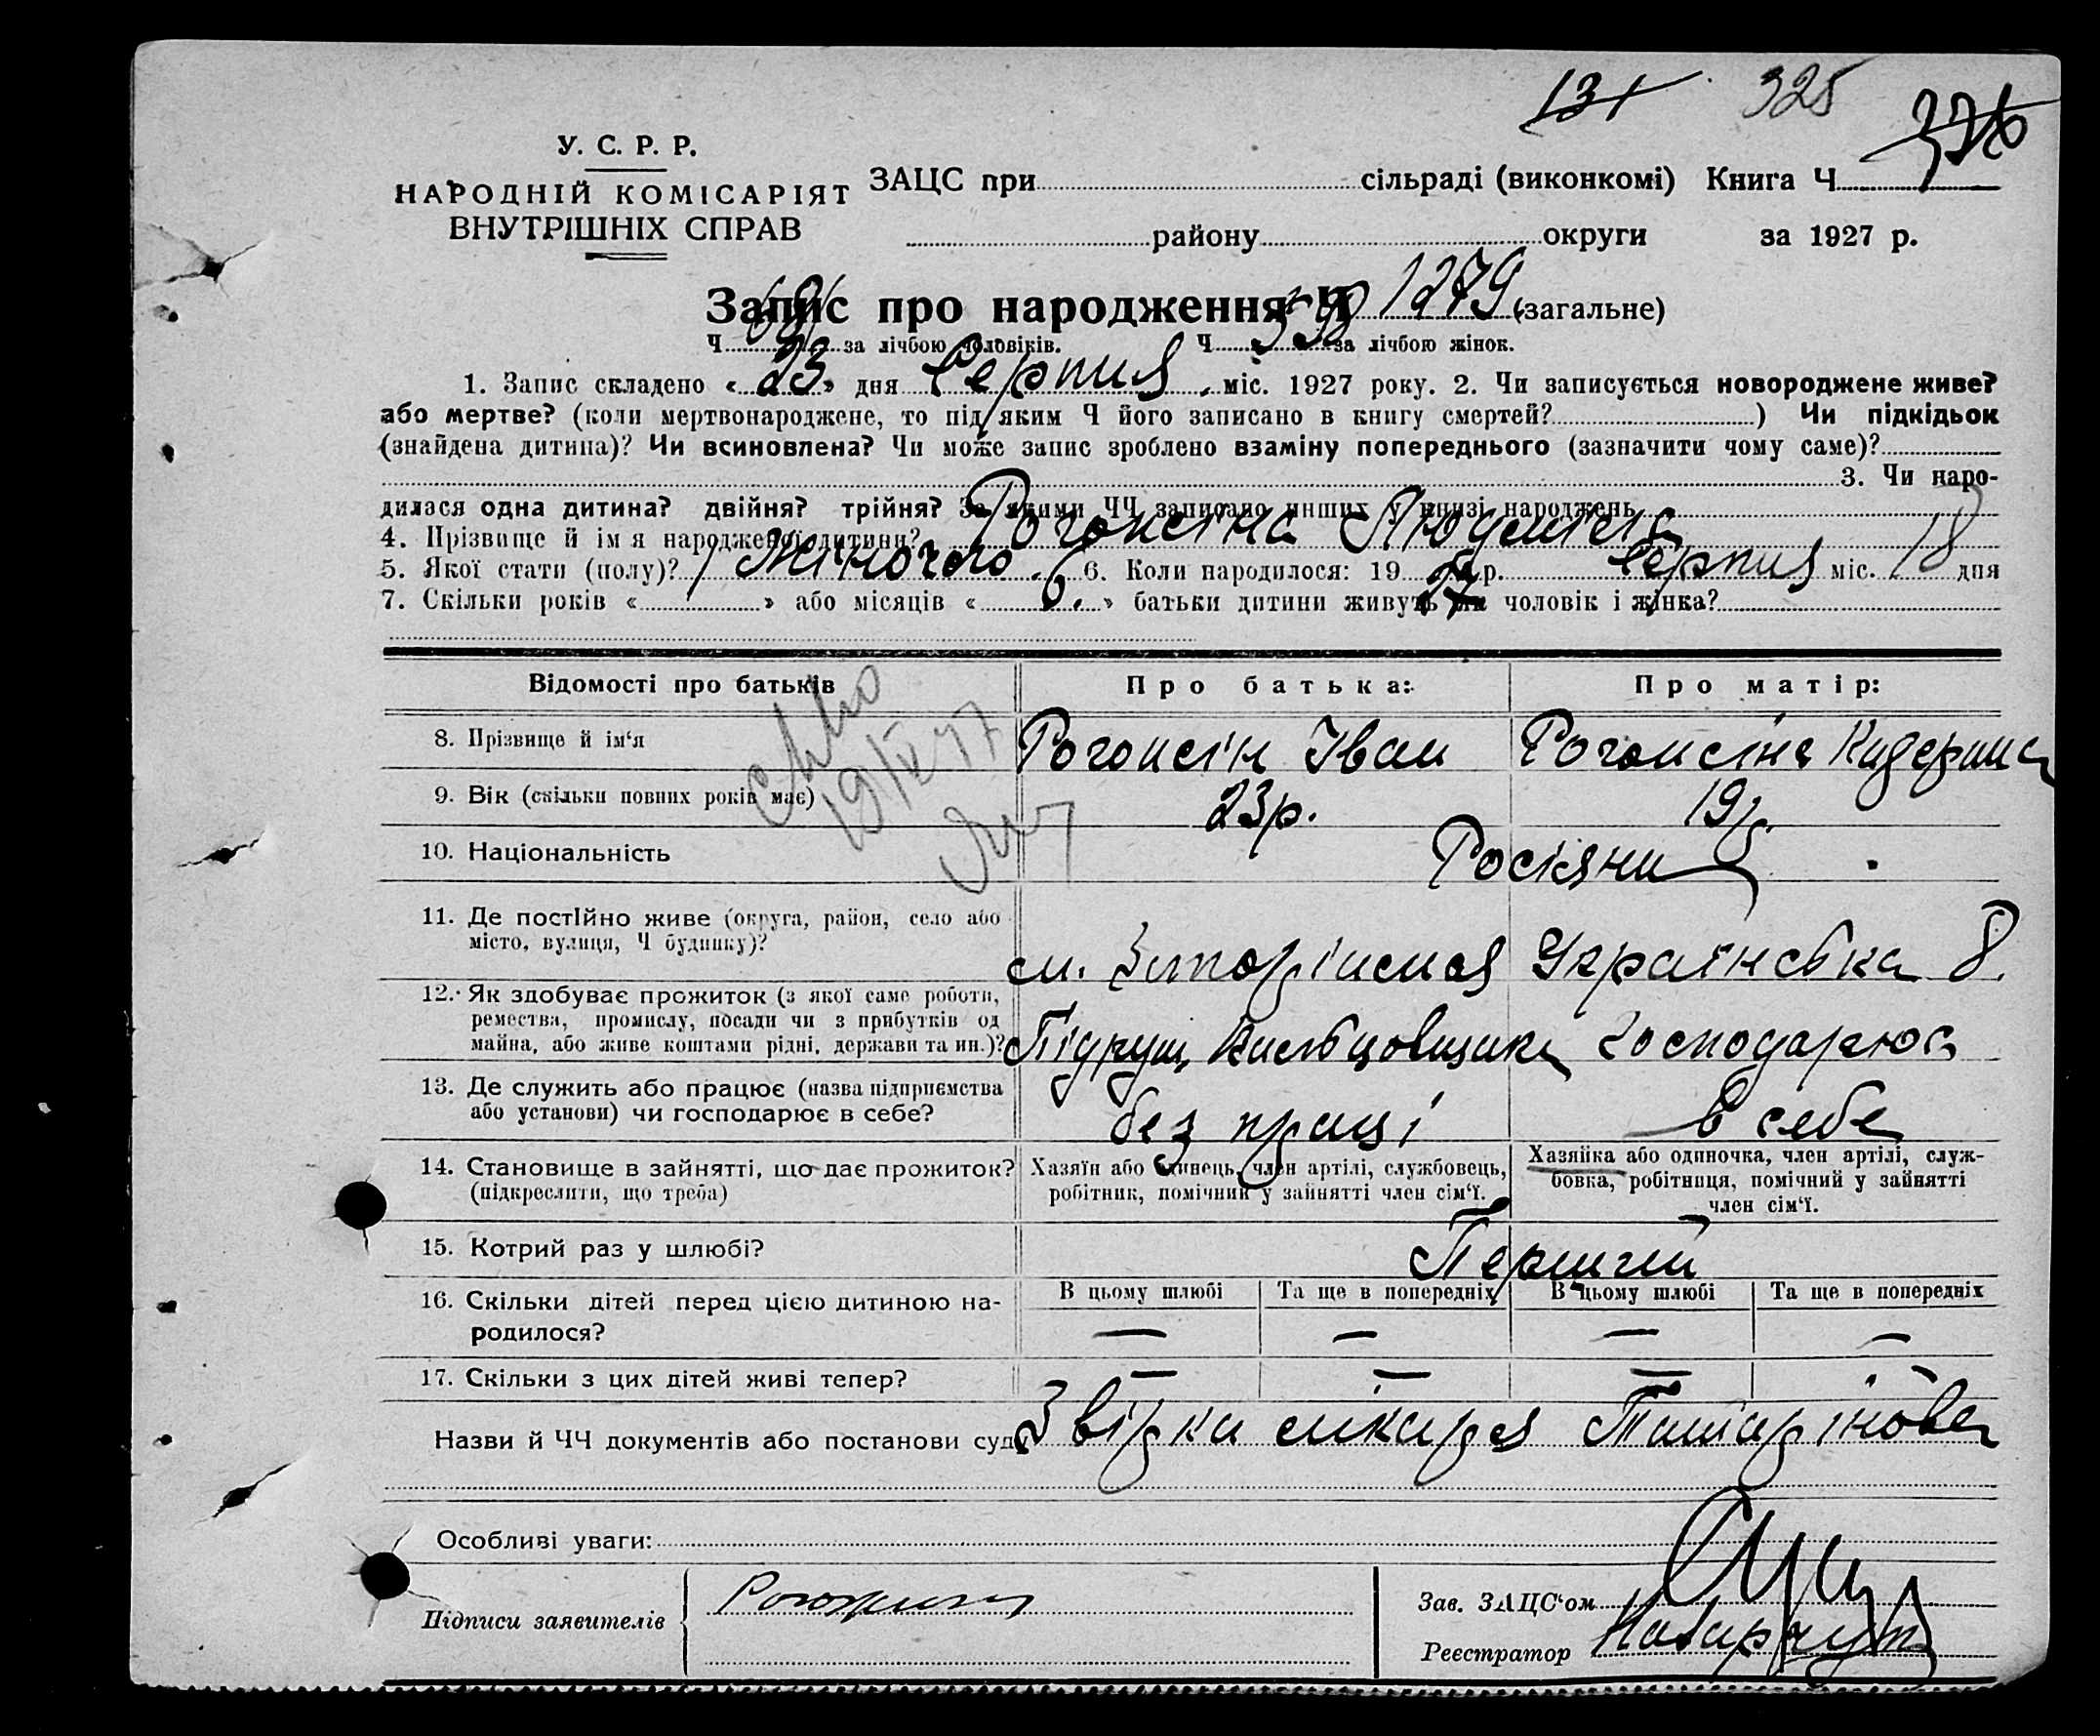 131 325 326
У. С. Р. Р.
НАРОДНІЙ КОМІСАРІЯТ
ВНУТРІШНІХ СПРАВ
ЗАЦС при сільраді (виконкомі) Книга Ч
району округи за 1927 р.
Запис про народження Ч 1279 (загальне)
Ч. за лічбою чоловіків. Ч. 590 за лічбою жінок.
1. Запис складено « 23 » дня Серпня міс. 1927 року. 2. Чи записується новороджене живе?
або мертве? (коли мертвонароджене, то під яким Ч його записано в книгу смертей? ) Чи підкідьок
(знайдена дитина)? Чи всиновлена? Чи може запис зроблено взаміну попереднього (зазначити чому саме)?
3. Чи наро-
дилася одна дитина? двійня? трійня? За якими ЧЧ записано инших у книзі народжень
4. Прізвище й ім я народженої дитини? Рогонсіна Людмила
5. Якої стати (полу)? Жіночого 6. Коли народилося: 19 27 р. Серпня міс. 18 дня
7. Скільки років « » або місяців « 6. » батьки дитини живуть як чоловік і жінка?
Відомості про батьків Про батька: Про матір:
8. Прізвище й ім‘я Рогонсін Іван Рогонсіна
9. Вік (скільки повних років має) 23р. 19р.
10. Національність Росіяни
11. Де постійно живе (округа, район, село або
місто, вулиця, Ч будинку)?
м. Запоріжжя Українська 8.
12. Як здобуває прожиток (з якої саме роботи,
ремества, промислу, посади чи з прибутків од
майна, або живе коштами рідні, держави та ин.)?
Підруш. Господарює
13. Де служить або працює (назва підприємства
або установи) чи господарює в себе?
без праці в себе
14. Становище в зайнятті, що дає прожиток?
(підкреслити, що треба)
Хазяїн або одинець, член артілі, службовець,
робітник, помічний у зайнятті член сім‘ї.
Хазяйка або одиночка, член артілі, служ-
бовка, робітниця, помічний у зайнятті
член сім‘ї.
15. Котрий раз у шлюбі? Перший
16. Скільки дітей перед цією дитиною на-
родилося?
В цьому шлюбі Та ще в попередніх В цьому шлюбі Та ще в попередніх
— — — —
17. Скільки з цих дітей живі тепер? — — — —
Назви й ЧЧ документів або постанови суду Звірка лікаря Татарінова
Особливі уваги:
Підписи заявителів
Зав. ЗАЦС‘ом
Реєстратор